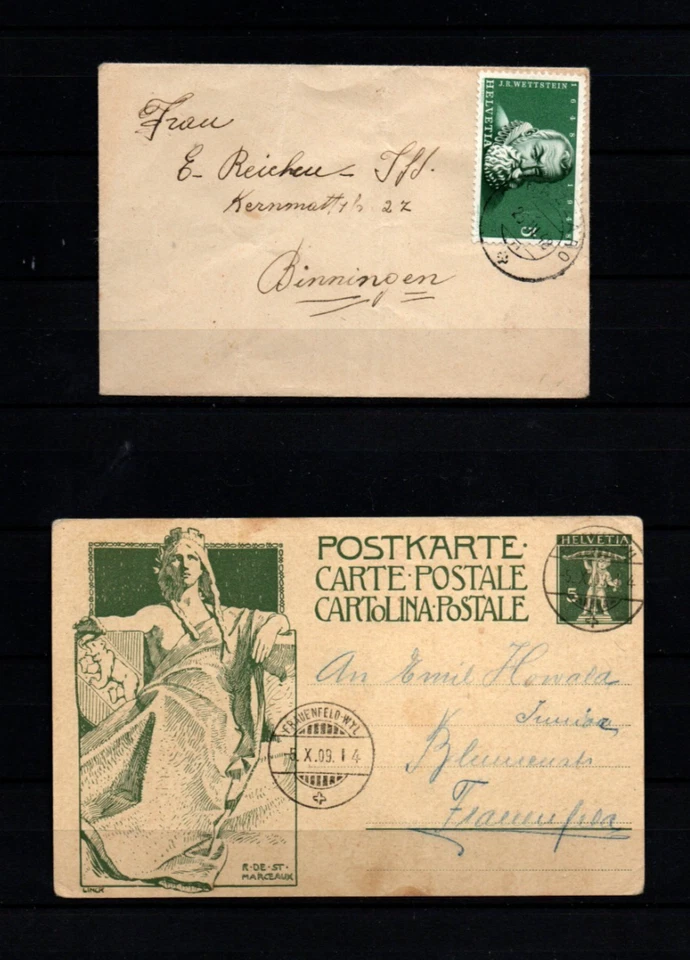 Frau
E. Reichen-
Kernmattstr. 27
Binningen
J.R.WETTSTEIN
HELVETIA
1648
1948
5
POSTKARTE·
CARTE·POSTALE
CARTOLINA·POSTALE
HELVETIA
5
An Emil Howald
Junior
Blumenstr
Frauenfeld
FRAUENFELD-WYL
5. X. 09. I 4
R·DE·ST·
MARCEAUX